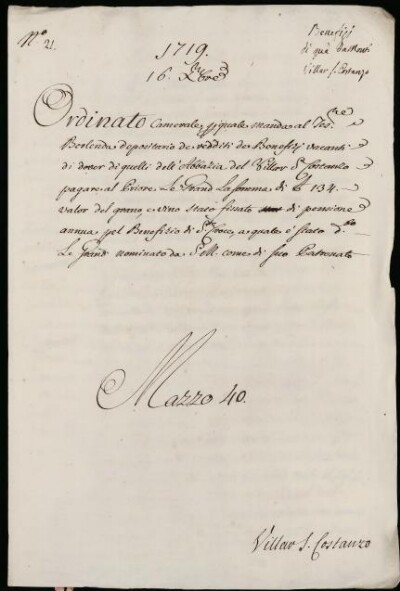 N.º 21.
Benefizj
di quà da Monti
Villar S. Costanzo
1719.
16. Xbre
Ordinato Camerale, pel quale manda al Tes.re
Berlenda depositario de redditi de Benefizj vacanti
di dover di quelli dell'Abbazia del Villar S. Costanzo
pagare al Priore Le Grand la somma di £ 134.
valor del grano, e vino stato fissato di pensione
annua pel Benefizio di S.ta Croce, a quale è stato d.to
Le Grand nominato da S. M. come di suo Patronato
Mazzo 40.
Villar S. Costanzo